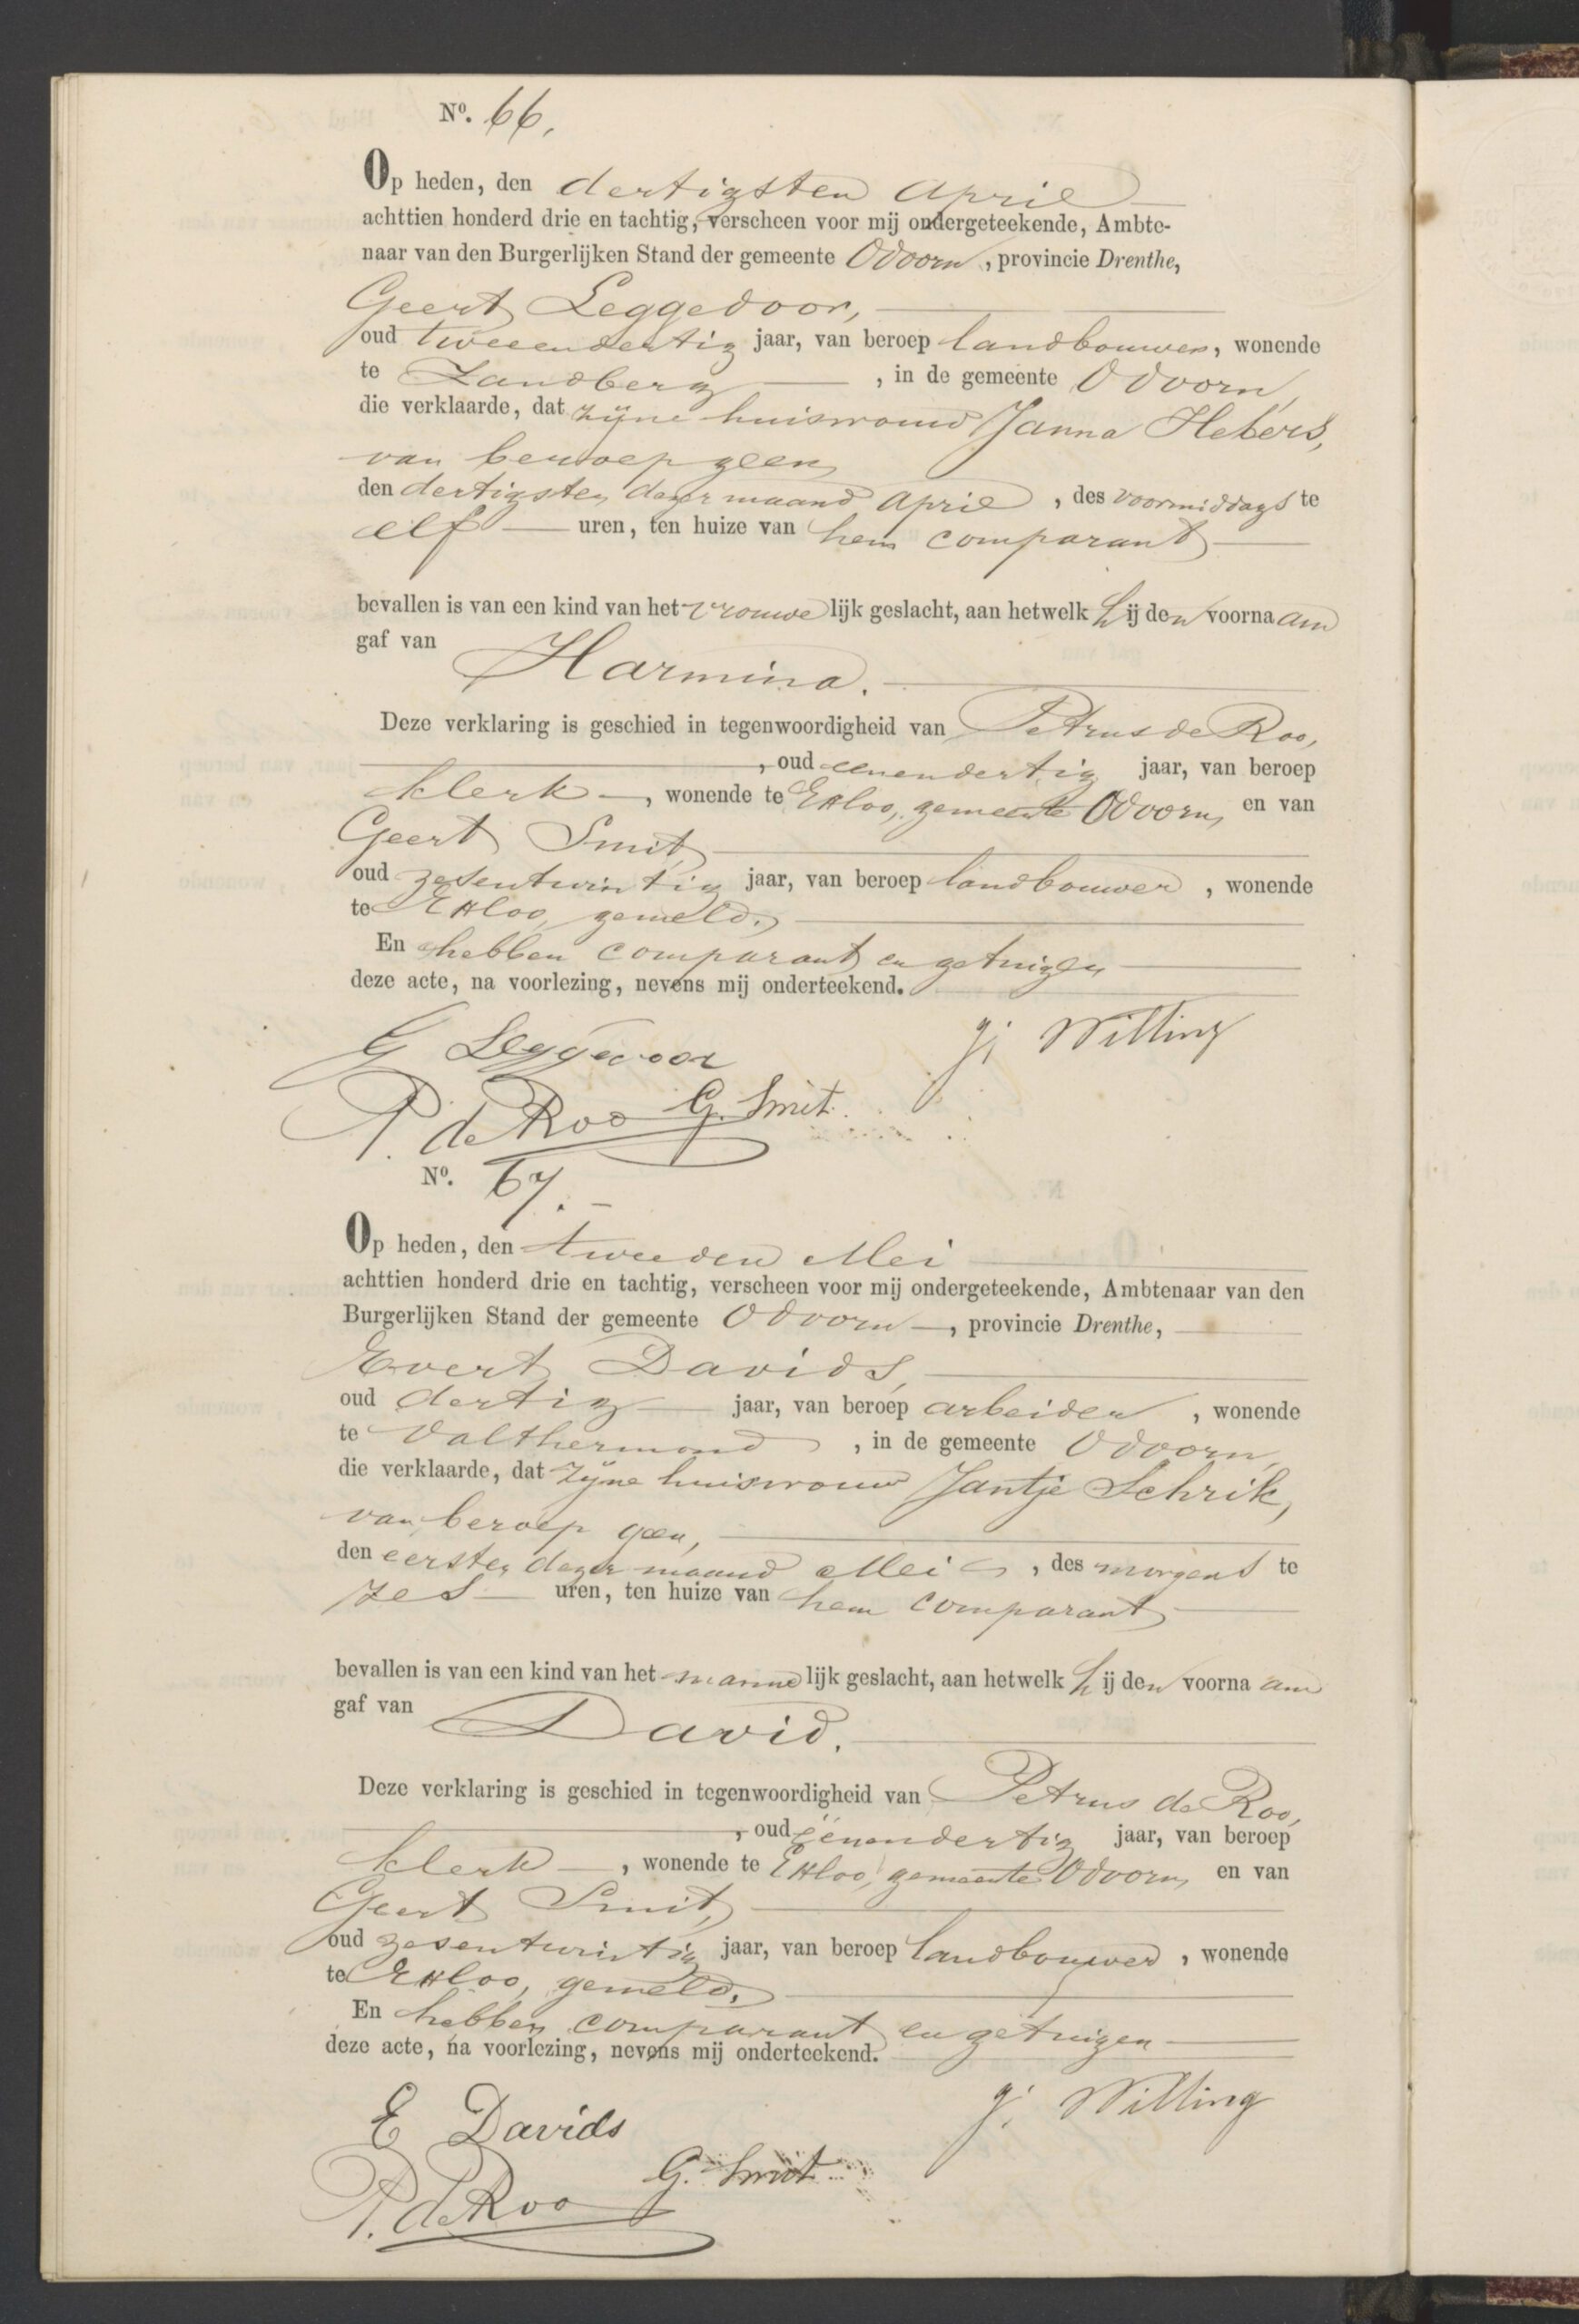 Nº. 66.
Op heden, den dertigsten April
achttien honderd drie en tachtig, verscheen voor mij ondergeteekende, Ambte-
naar van den Burgerlijken Stand der gemeente Odoorn, provincie Drenthe,
Geert Leggedoor,
oud tweeendertig jaar, van beroep landbouwer, wonende
te Zandberg, in de gemeente Odoorn,
die verklaarde, dat zijne huisvrouw Janna Hebers,
van beroep geen,
den dertigsten dezer maand April, des voormiddags te
elf uren, ten huize van hem comparant
bevallen is van een kind van het vrouwelijk geslacht, aan hetwelk hij den voornaam
gaf van Harmina.
Deze verklaring is geschied in tegenwoordigheid van Petrus de Roo,
, oud eenendertig jaar, van beroep
klerk, wonende te Exloo, gemeente Odoorn, en van
Geert Smit,
oud zesentwintig jaar, van beroep landbouwer, wonende
te Exloo, gemeld.
En hebben comparant en getuigen
deze acte, na voorlezing, nevens mij onderteekend.
G Leggedoor
J. Willing
P. de Roo G. Smit.
Nº. 67.
Op heden, den tweeden Mei
achttien honderd drie en tachtig, verscheen voor mij ondergeteekende, Ambtenaar van den
Burgerlijken Stand der gemeente Odoorn, provincie Drenthe,
Evert Davids,
oud dertig jaar, van beroep arbeider, wonende
te Valthermond, in de gemeente Odoorn,
die verklaarde, dat zijne huisvrouw Jantje Schrik,
van beroep geen,
den eersten dezer maand Mei, des morgens te
zes uren, ten huize van hem comparant
bevallen is van een kind van het mannelijk geslacht, aan hetwelk hij den voornaam
gaf van David.
Deze verklaring is geschied in tegenwoordigheid van Petrus de Roo,
, oud eenendertig jaar, van beroep
klerk, wonende te Exloo, gemeente Odoorn, en van
Geert Smit,
oud zesentwintig jaar, van beroep landbouwer, wonende
te Exloo, gemeld.
En hebben comparant en getuigen
deze acte, na voorlezing, nevens mij onderteekend.
E Davids
J. Willing
G. Smit
P. de Roo